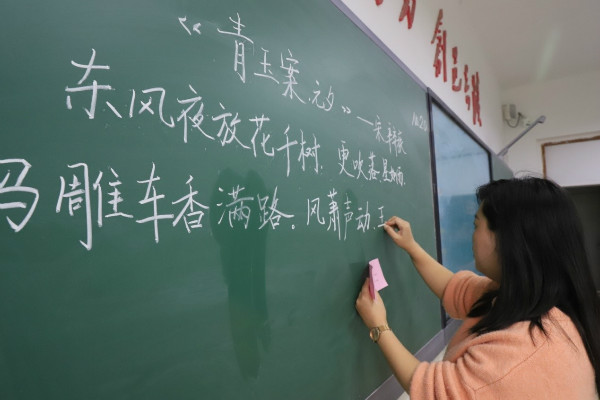 《青玉案·元夕》——宋·辛弃疾
东风夜放花千树.更吹落.星如雨.
马雕车香满路。风萧声动.王